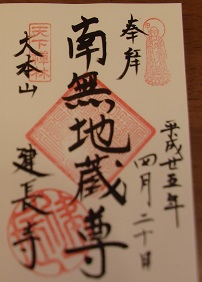 奉拝
平成廿五年
四月二十日
南無地蔵尊
天下禅林
大本山
建長寺